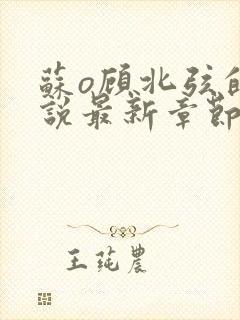 蘇o顾北弦的
說最新章節
王莼農